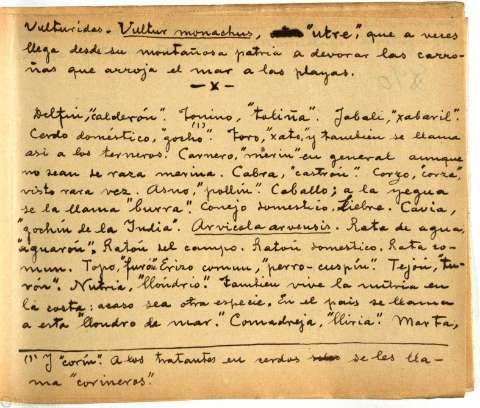 Vulturidas. Vultur monachus, "utre", que a veces
llega desde su montañosa patria a devorar las carro-
ñas que arroja el mar a las playas.
—x—
Delfín, "calderón". Tonino, "toliña". Jabalí, "xabaril".
Cerdo doméstico, "gocho"(1). Toro, "xato", y también se llama
así a los terneros. Carnero, "merin" en general aunque
no sean de raza merina. Cabra, "castrón". Corzo, "corza",
visto rara vez. Asno, "pollin". Caballo; a la yegua
se la llama "burra". Conejo domestico. Liebre. Cavia,
"gochin de la India". Arvicola arvensis. Rata de agua,
"aguarón". Ratón del campo. Ratón domestico. Rata co-
mun. Topo, "furón". Erizo comun, "perro-cuspín". Tejón, "teu-
rón". Nutria, "llóndrio". Tambien vive la nutria en
la costa: acaso sea otra especie. En el país se llama
a esta llondro de mar." Comadreja, "lliria". Marta,
(1) Y "corín". A los tratantes en cerdos se les lla-
ma "corineros".